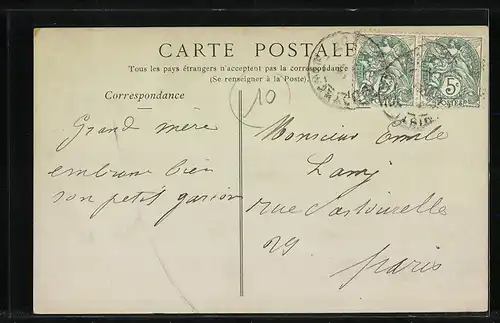 CARTE POSTALE
Tous les pays étrangers n'acceptent pas la correspondance
(Se renseigner à la Poste).
Correspondance
10
5c
POSTES
Grand mère
embrasse bien
son petit garçon
Monsieur Emile
Lamy
rue
29
Paris